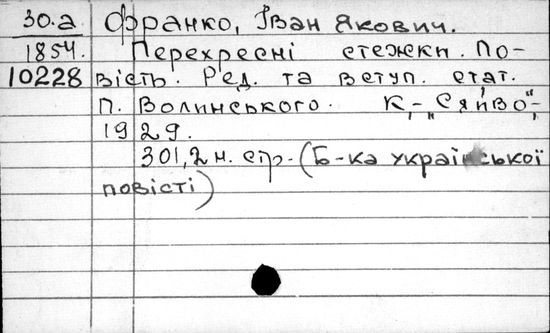 30.а Франко, Іван Якович.
1854. Перехресні стежки. По-
10228 вість. Ред. та вступ. стат.
п. Волинського. К, „Сяйво",
1929.
301,2 н. стр. (Б-ка української
повісті)